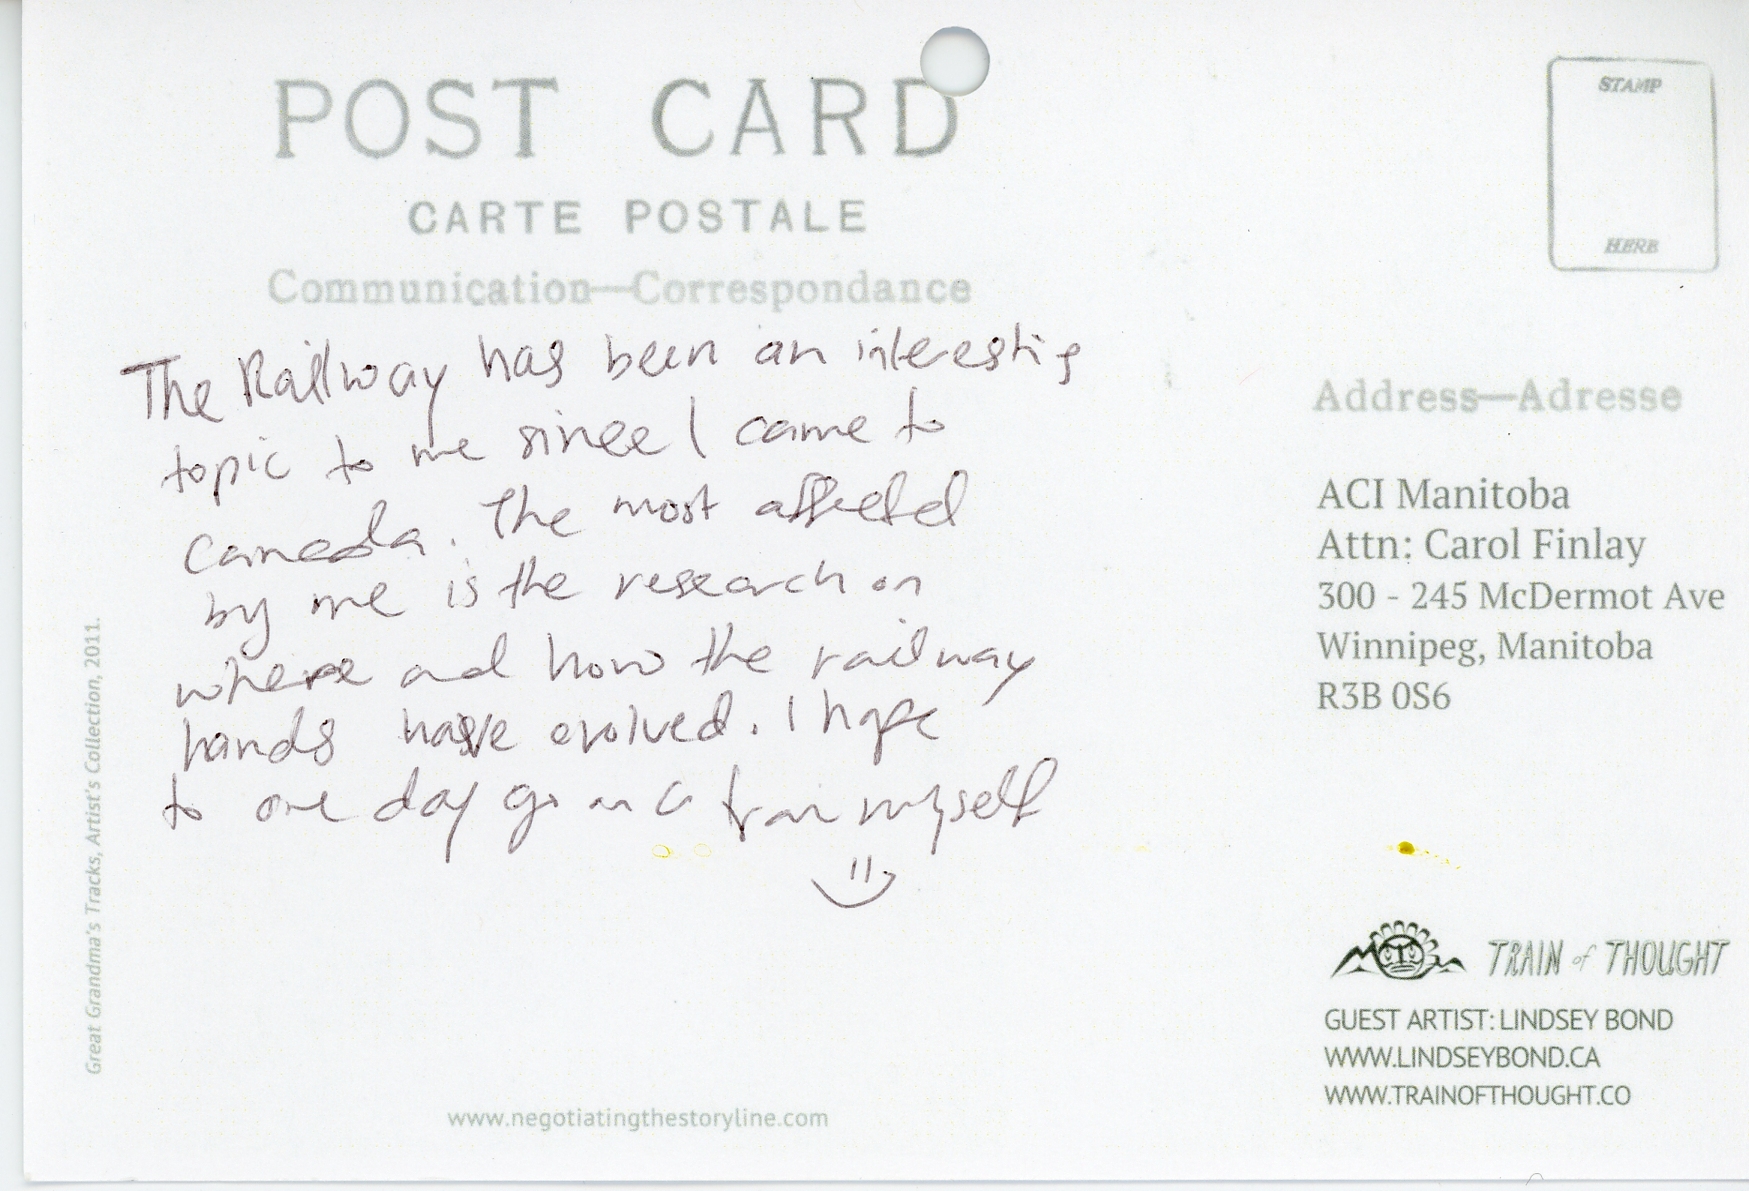 POST CARD
CARTE POSTALE
Communication—Correspondance
STAMP
HERE
The Railway has been an interesting
topic to me since I came to
Canada. The most affected
by me is the research on
where and how the railway
hands have evolved. I hope
to one day go on a train myself
Address—Adresse
ACI Manitoba
Attn: Carol Finlay
300 - 245 McDermot Ave
Winnipeg, Manitoba
R3B 0S6
Great Grandma's Tracks, Artist's Collection, 2011.
TRAIN of THOUGHT
GUEST ARTIST: LINDSEY BOND
WWW.LINDSEYBOND.CA
WWW.TRAINOFTHOUGHT.CO
www.negotiatingthestoryline.com